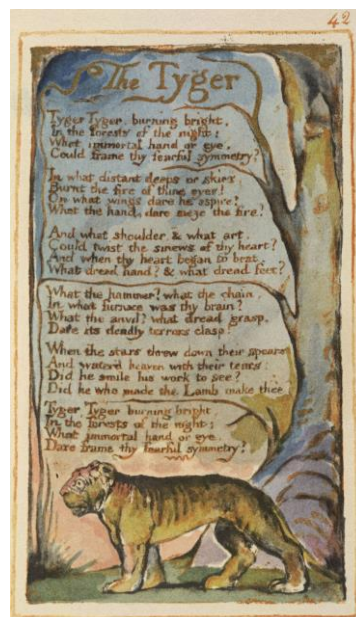 42
The Tyger
Tyger Tyger, burning bright,
In the forests of the night;
What immortal hand or eye,
Could frame thy fearful symmetry?
In what distant deeps or skies,
Burnt the fire of thine eyes?
On what wings dare he aspire?
What the hand, dare sieze the fire?
And what shoulder, & what art,
Could twist the sinews of thy heart?
And when thy heart began to beat,
What dread hand? & what dread feet?
What the hammer? what the chain,
In what furnace was thy brain?
What the anvil? what dread grasp,
Dare its deadly terrors clasp!
When the stars threw down their spears
And water'd heaven with their tears:
Did he smile his work to see?
Did he who made the Lamb make thee
Tyger, Tyger burning bright,
In the forests of the night:
What immortal hand or eye,
Dare frame thy fearful symmetry?